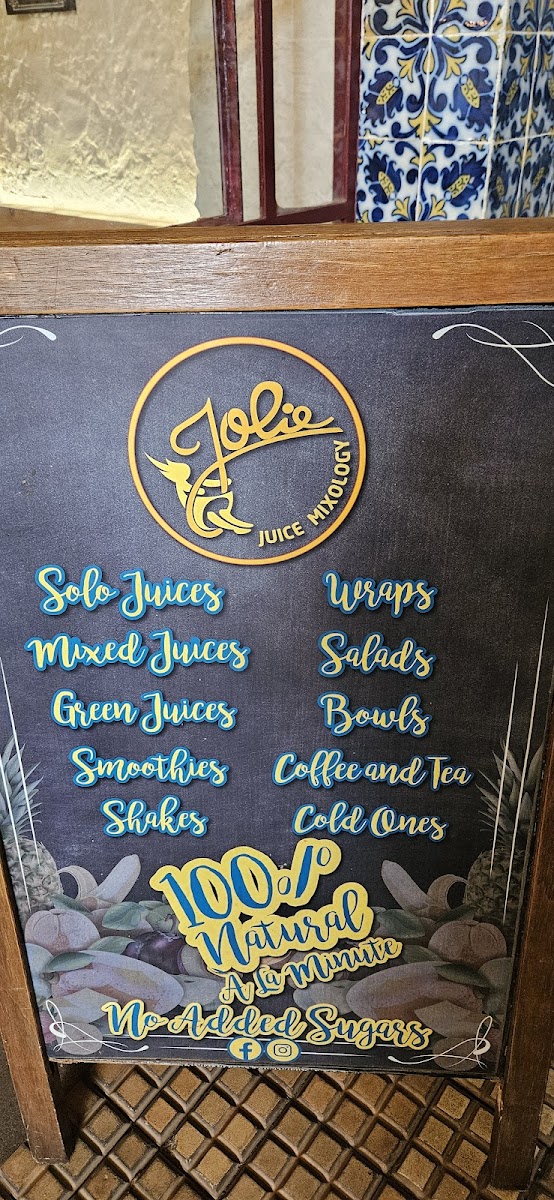 Jolie
JUICE MIXOLOGY
Solo Juices
Mixed Juices
Green Juices
Smoothies
Shakes
Wraps
Salads
Bowls
Coffee and Tea
Cold Ones
100%
Natural
À La Minute
No Added Sugars